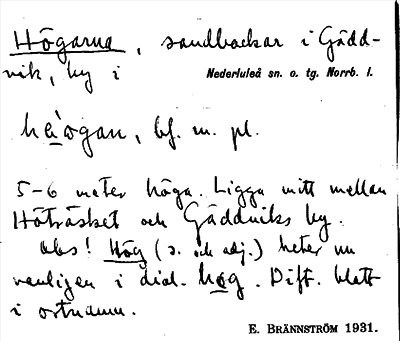 Högarna, sandbackar i Gädd-
vik, by i Nederluleå sn. o. tg. Norrb. l.
hèogan, bf. m. pl.
5-6 meter höga. Ligga mitt mellan
Höträsket och Gäddviks by.
Obs! Hög (s. och adj.) heter nu
vanligen i dial. høg. Dift. blott
i ortnamn.
E. BRÄNNSTRÖM 1931.